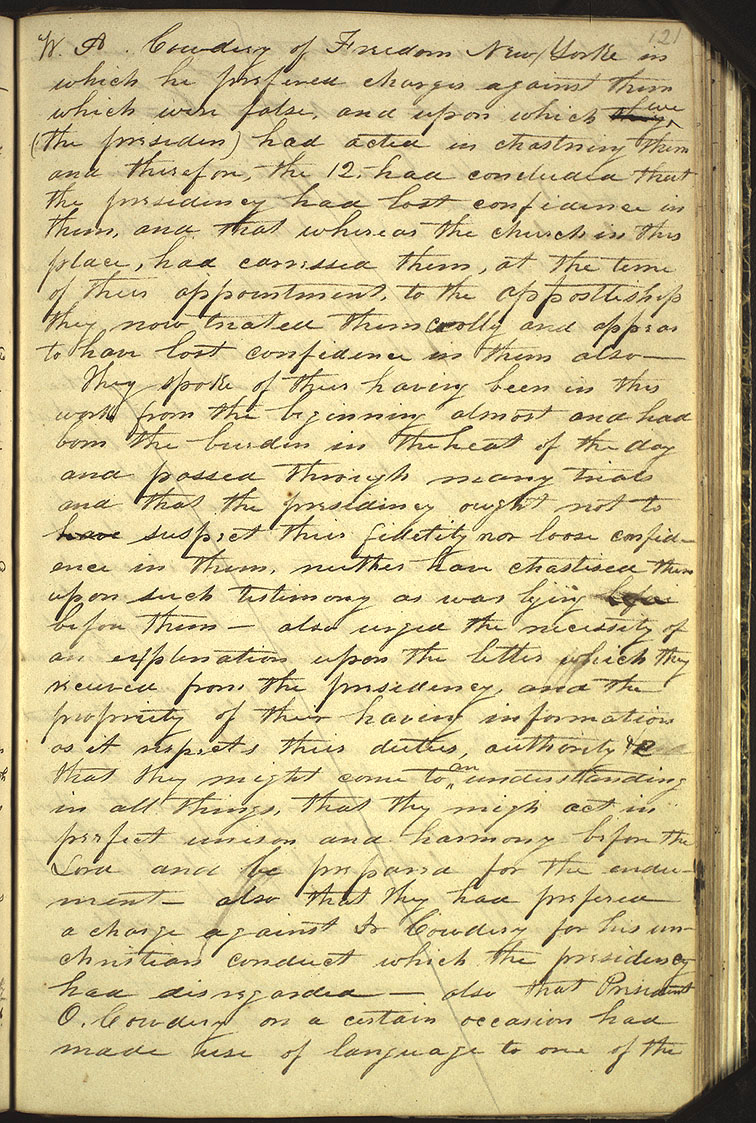 121
W. A. Cowdery of Freedom New Yorke in
which he prefered charges against them
which were false, and upon which they we
(the presiden) had acted in chastning them
and therefore, the 12. had concluded that
the presidency had lost confidence in
them, and that whereas the church in this
place, had carressed them, at the time
of their appointment, to the appostleship
they now treated them coolly and appear
to have lost confidence in them also—
They spoke of their having been in this
work from the beginning almost and had
born the burden in the heat of the day
and passed through many trials
and that the presidency ought not to
have suspect their fidelity nor loose confid-
ence in them, neither have chastised them
upon such testimony as was lying before
before them — also urged the necessity of
an explanation upon the letter which they
received from the presidency, and the
propriety of their having information
as it respects their duties, authority &c
that they might come to an understanding
in all things, that they migh act in
perfect unison and harmony before the
Lord and be prepared for the endu-
ment— also that they had prefered
a charge against Dr Cowdery for his un-
christian conduct which the presidency
had disregarded — also that President
O. Cowdery on a certain occasion had
made use of language to one of the